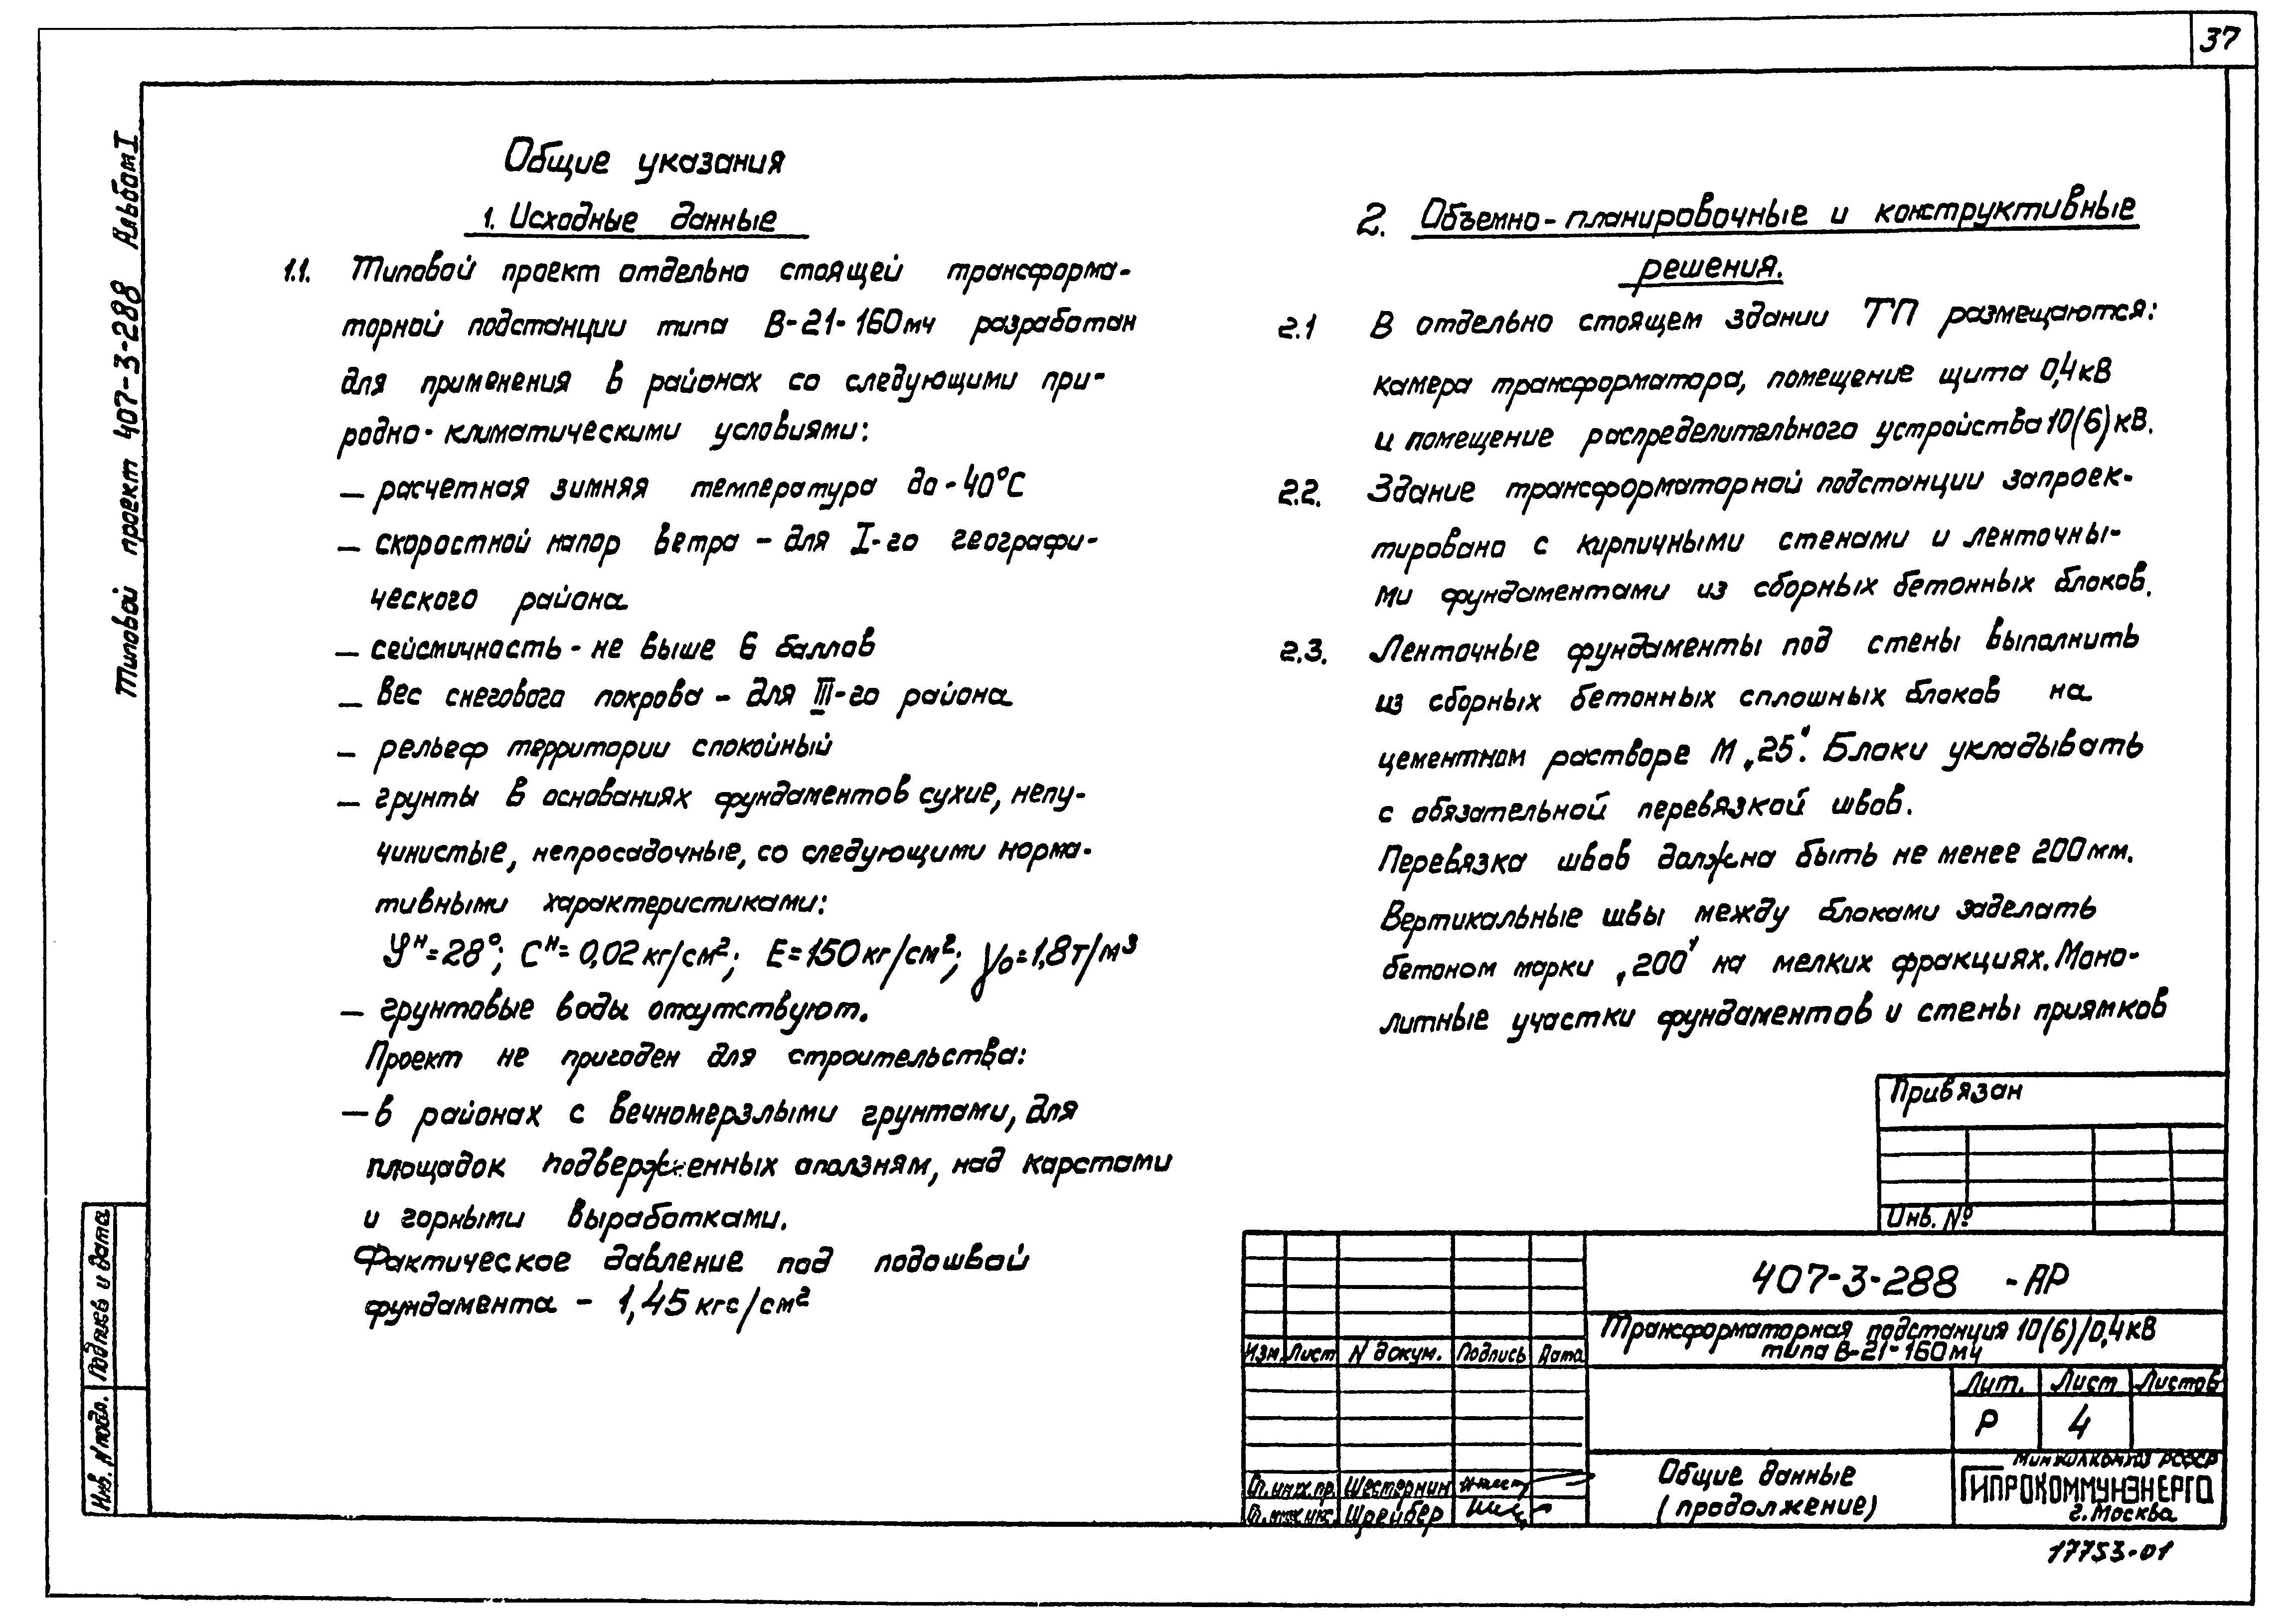 37
Типовой проект 407-3-288 Альбом I
Общие указания
1. Исходные данные
1.1. Типовой проект отдельно стоящей трансформа-
торной подстанции типа В-21-160мч разработан
для применения в районах со следующими при-
родно-климатическими условиями:
— расчетная зимняя температура до -40°С
— скоростной напор ветра - для I-го географи-
ческого района
— сейсмичность - не выше 6 баллов
— вес снегового покрова - для III-го района
— рельеф территории спокойный
— грунты в основаниях фундаментов сухие, непу-
чинистые, непросадочные, со следующими норма-
тивными характеристиками:
φн=28°; Сн=0,02кг/см²; Е=150кг/см²; γо=1,8т/м³
— грунтовые воды отсутствуют.
Проект не пригоден для строительства:
— в районах с вечномерзлыми грунтами, для
площадок подверженных оползням, над карстами
и горными выработками.
Фактическое давление под подошвой
фундамента - 1,45 кгс/см²
2. Объемно-планировочные и конструктивные
решения.
2.1 В отдельно стоящем здании ТП размещаются:
камера трансформатора, помещение щита 0,4кВ
и помещение распределительного устройства 10(6)кВ.
2.2. Здание трансформаторной подстанции запроек-
тировано с кирпичными стенами и ленточны-
ми фундаментами из сборных бетонных блоков.
2.3. Ленточные фундаменты под стены выполнить
из сборных бетонных сплошных блоков на
цементном растворе М „25". Блоки укладывать
с обязательной перевязкой швов.
Перевязка швов должна быть не менее 200мм.
Вертикальные швы между блоками заделать
бетоном марки „200" на мелких фракциях. Моно-
литные участки фундаментов и стены приямков
Привязан
Инв. №
407-3-288 -АР
Трансформаторная подстанция 10(6)/0,4кВ
типа В-21-160мч
Изм. Лист N докум. Подпись Дата
Лит. Лист Листов
Р 4
Гл. инж. пр. Шестернин
Шрейбер
Общие данные
(продолжение)
Минжилкомхоз РСФСР
ГИПРОКОММУНЭНЕРГО
г. Москва
17753-01
Инв. N подл. Подпись и дата